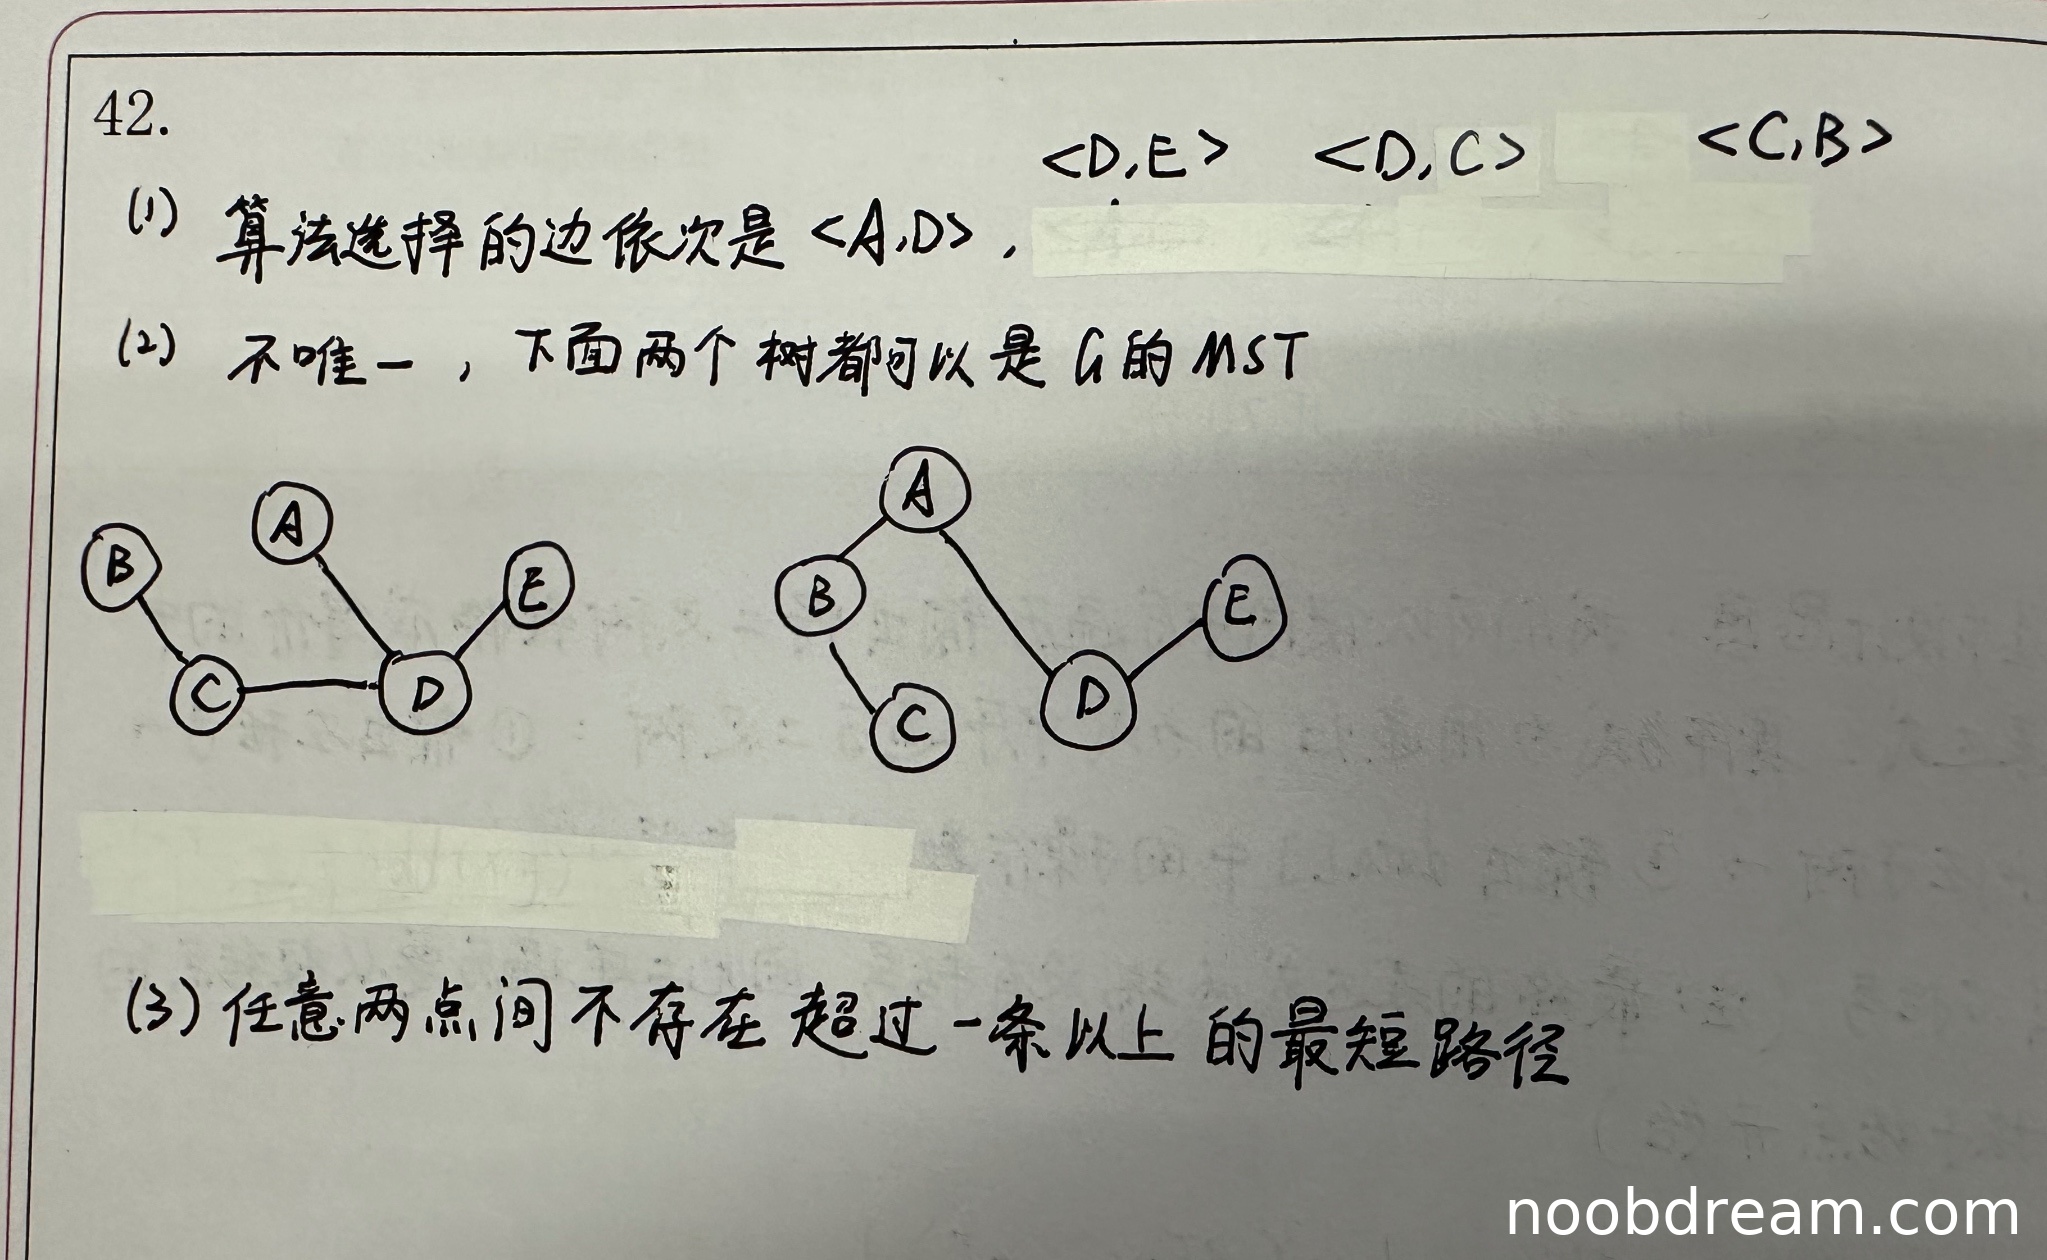 42.
<D,E> <D,C> <C,B>
(1) 算法选择的边依次是 <A,D>,
(2) 不唯一, 下面两个树都可以是G的MST
A
B A E
B E
C D D
C
(3) 任意两点间不存在超过一条以上的最短路径
noobdream.com